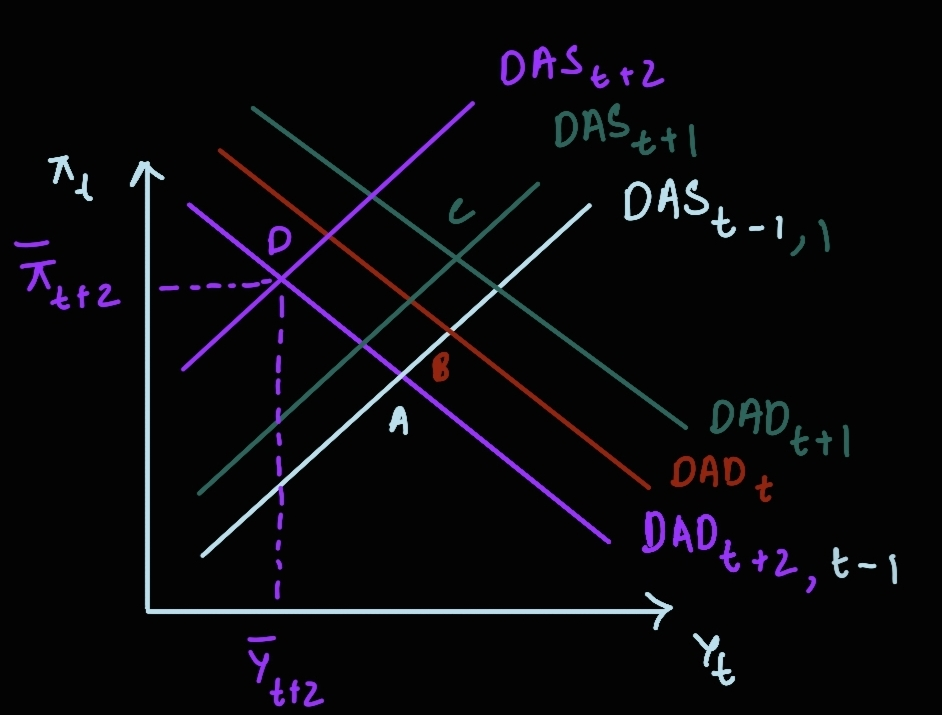 DAS t+2
DAS t+1
π t
DAS t-1, 1
C
D
π̄ t+2
B
A
DAD t+1
DAD t
DAD t+2, t-1
Y t
Ȳ t+2